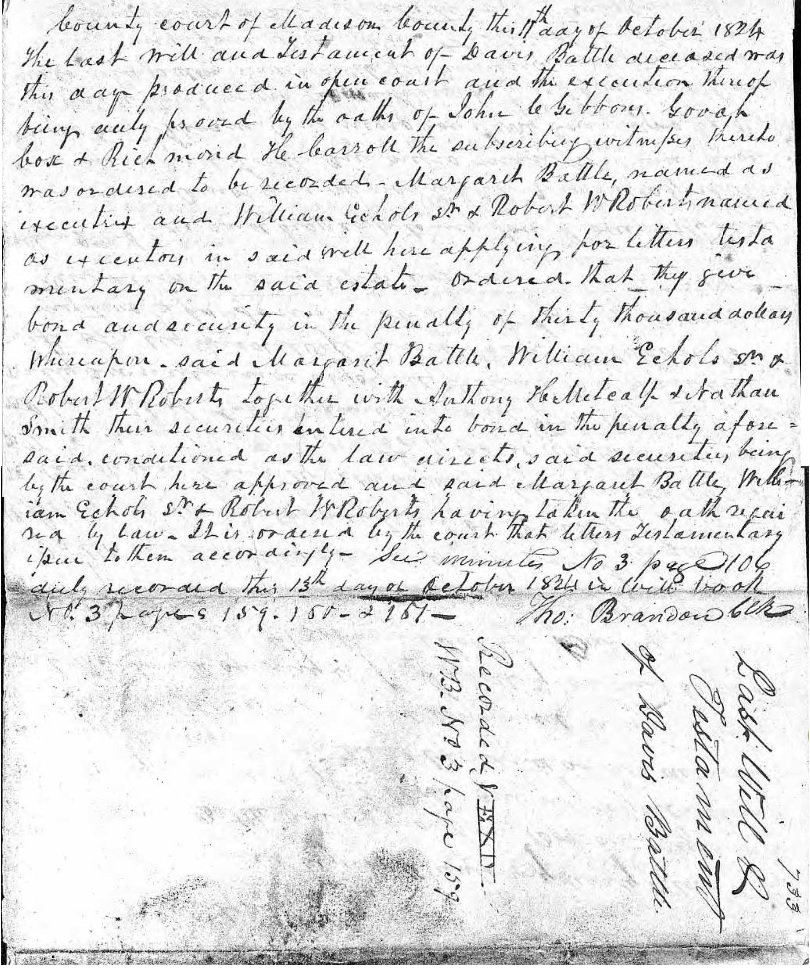 County court of Madison County this 11th day of October 1824
The last will and Testament of Davis Battle deceased was
this day produced in open court and the execution thereof
being duly proved by the oaths of John C Gibbons. Gough
Cox & Richmond H. Carroll the subscribing witnesses thereto
was ordered to be recorded - Margaret Battle, named as
executrix and William Echols Sr. & Robert W Roberts named
as executors in said will here applying for letters testa
mentary on the said estate - ordered that they give
bond and security in the penalty of thirty thousand dollars
Whereapon - said Margaret Battle, William Echols Sr. &
Robert W Roberts together with Anthony H. Metcalf & Nathan
Smith their securities entered into bond in the penalty afore =
said, conditioned as the law directs, said securities being
by the court here approved and said Margaret Battle, Will-
iam Echols Sr. & Robert W Roberts having taken the oath requi
red by law - It is ordered by the court that letters Testamentary
issue to them accordingly - See minutes No 3 page 106
duly recorded this 13th day of October 1824 in Will book
No. 3 pages 159. 160 - & 161 -
Tho: Brandon Clk
Recorded
WB. No 3 page 159
Last Will &
Testament
of Davis Battle.
733